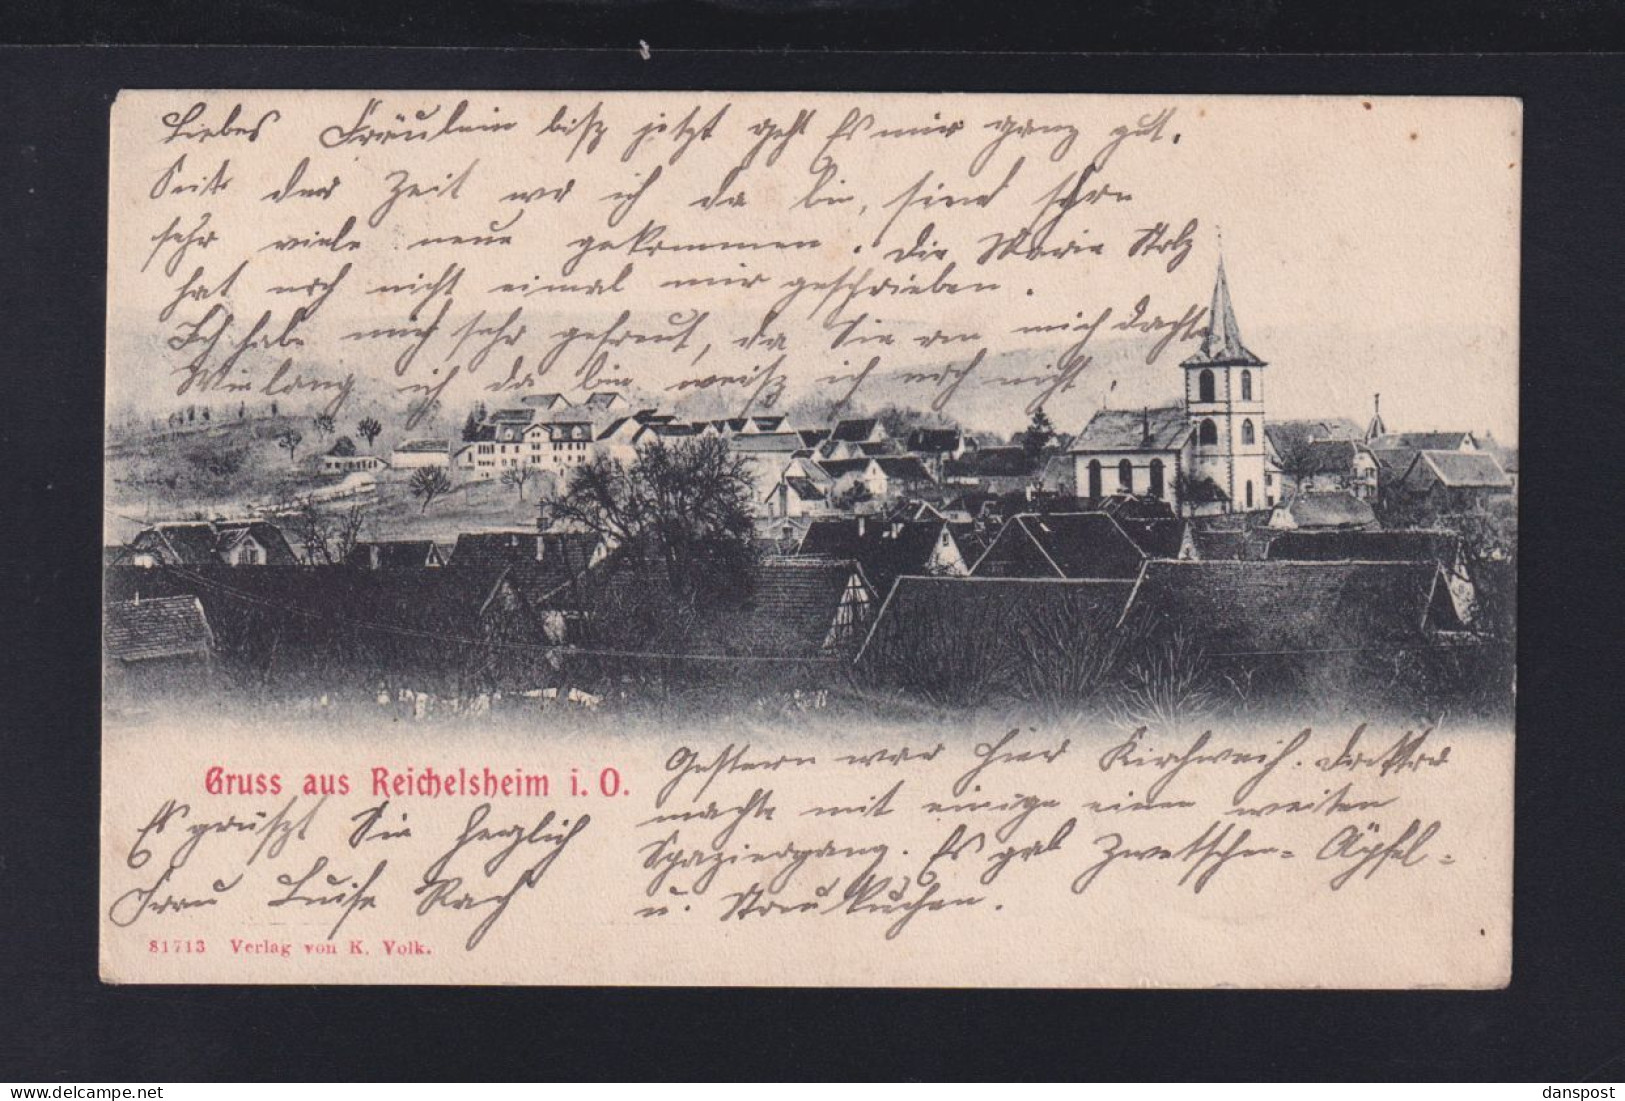 Liebes Fräulein bisz jetzt geht Es mir ganz gut.
Seit der Zeit wo ich da bin, sind schon
sehr viele neue gekommen. die Marie Stolz
hat noch nicht einmal mir geschrieben.
Ich habe mich sehr gefreut, da Sie an mich dachte
Wie lang ich da bin weisz ich noch nicht.
Gruss aus Reichelsheim i. O.
Es grüszt Sie herzlich
Frau Luise Rach
Gestern war hier Kirchweih. Doktor
machte mit einige einen weiten
Spaziergang. Es gab Zwetschen- Äpfel-
u. Streu kuchen.
81713 Verlag von K. Volk.
danspost